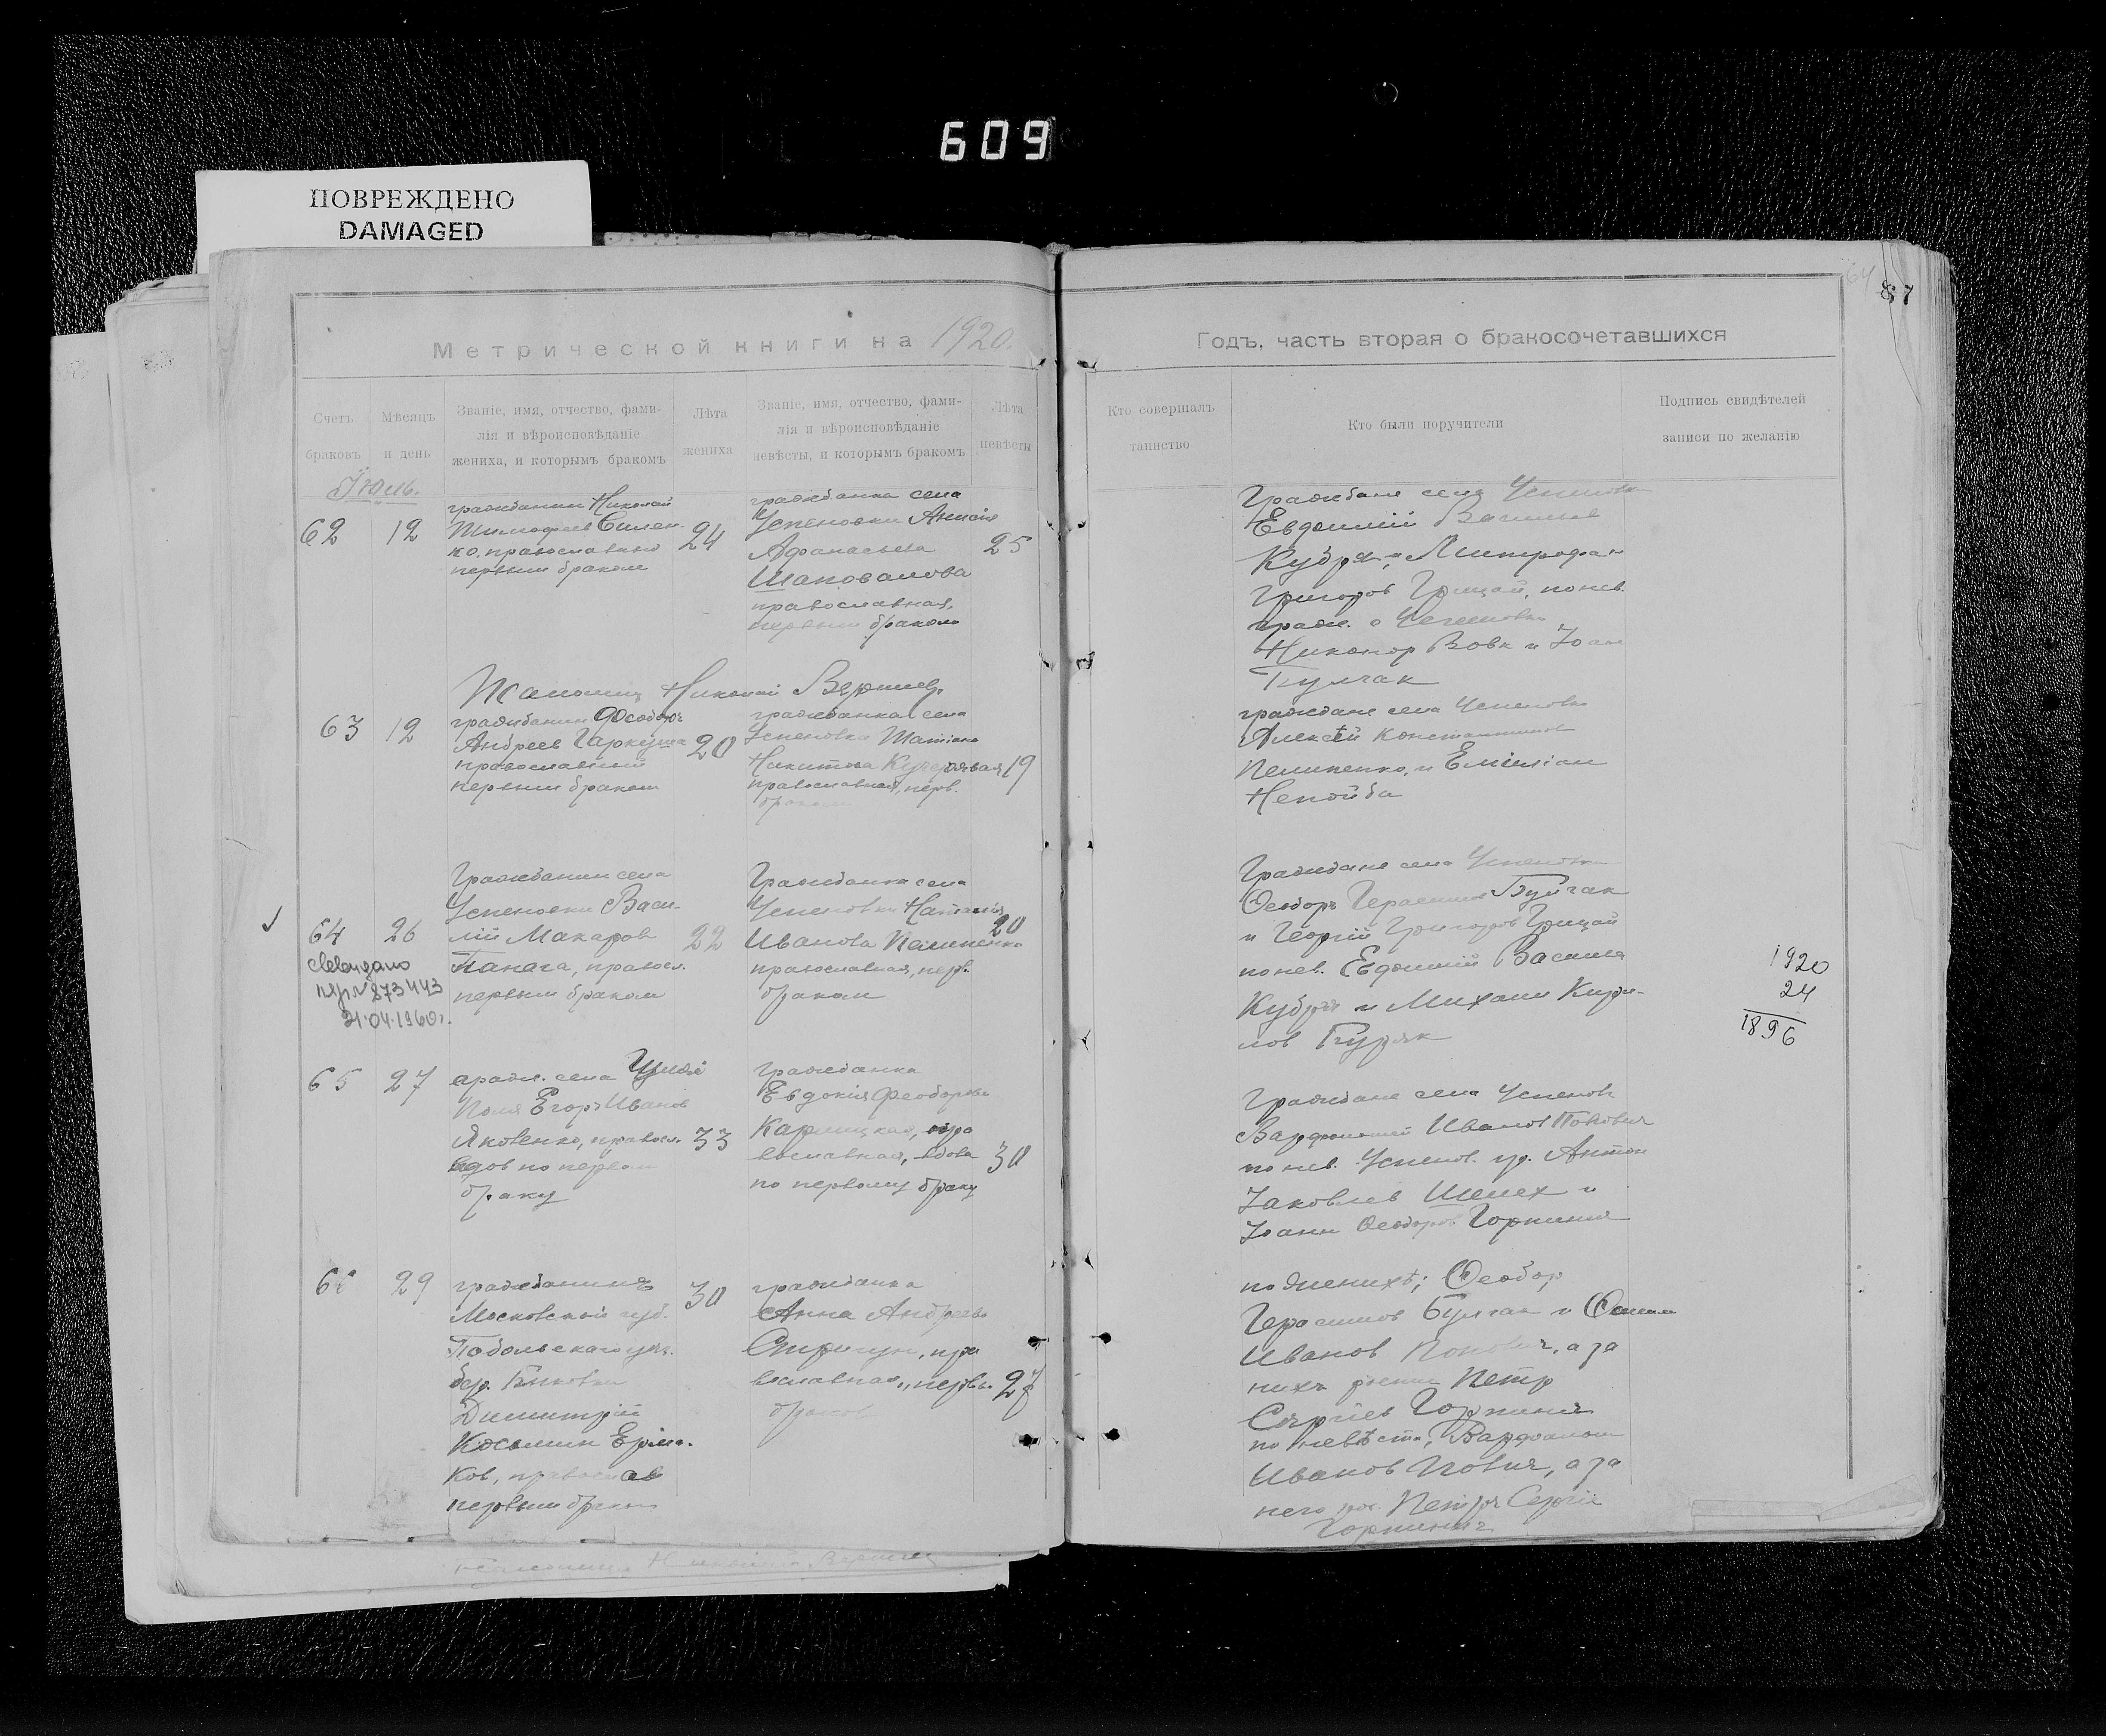 609
ПОВРЕЖДЕНО
DAMAGED
64
87
Метрической книги на 1920.
Годъ, часть вторая о бракосочетавшихся
Счетъ браковъ
Мѣсяцъ и день
Званіе, имя, отчество, фами-
лія и вѣроисповѣданіе
жениха, и которымъ бракомъ
Лѣта жениха
Званіе, имя, отчество, фами-
лія и вѣроисповѣданіе
невѣсты, и которымъ бракомъ
Лѣта невѣсты
Кто совершалъ таинство
Кто были поручители
Подпись свидѣтелей
записи по желанію
Іюль.
62
12
гражданин Николай
Тимофеев Силен-
ко, православный
первым браком
24
гражданка села
Успеновки Анисія
Афанасьева
Шаповалова
православная,
первым браком
25
Граждане села Успеновки
Евдоким Васильев
Кудря, и Митрофан
Григоров Грицай, по нев.
гражд. с Успеновки
Никанор Вовк и Іоан
Булчак
Николай
63
12
гражданин Феодор
Андреев Гаркуша
православный
первым браком
20
гражданка села
Успеновка Татіана
Никитова Кучерявая
православная, перв.
браком
19
граждане села Успеновки
Алексѣй Константинов
Пелипенко, и Емиліан
Непойда
64
26
Гражданин села
Успеновки Васи-
лій Макаров
Панага, правосл.
первым браком
22
Гражданка села
Успеновки Наталія
Иванова Пелипенко
православная, перв.
браком
20
№ 873443
21.04.1960г.
Граждане села Успеновки
Феодоръ Герасимов Булчак
и Георгій Григоров Грицай
по нев. Евдокимій Васильев
Кудря и Михаил Кири-
лов Буряк
1920
24
1896
65
27
гражд. села
Поля Егоръ Иванов
Яковенко, правосл.
вдов по первом
браку
33
Гражданка
Евдокія Феодорова
пра
вославная, вдова
по первому браку
30
Граждане села Успенов.
Варфоломей Иванов Попович
по нев. Успенов. гр. Антон
Іаковлев Шелех и
Іоанн Феодоров Горпинич
66
29
гражданинъ
Московской губ.
Подольского уѣз.
дер. Быковки
Димитрій
Косьмин Ерма-
ков, православ
первым браком
30
гражданка
Анна Андреева
Стригун, пра
вославная, первым
браком
27
по женихѣ; Феодор
Герасимов Булчак и
Иванов Попович, а за
них росписался Петр
Сергіев Горпинич
по невѣстѣ, Варфоломей
Иванов Попович, а за
него рос. Петръ Сергіев
Горпинич